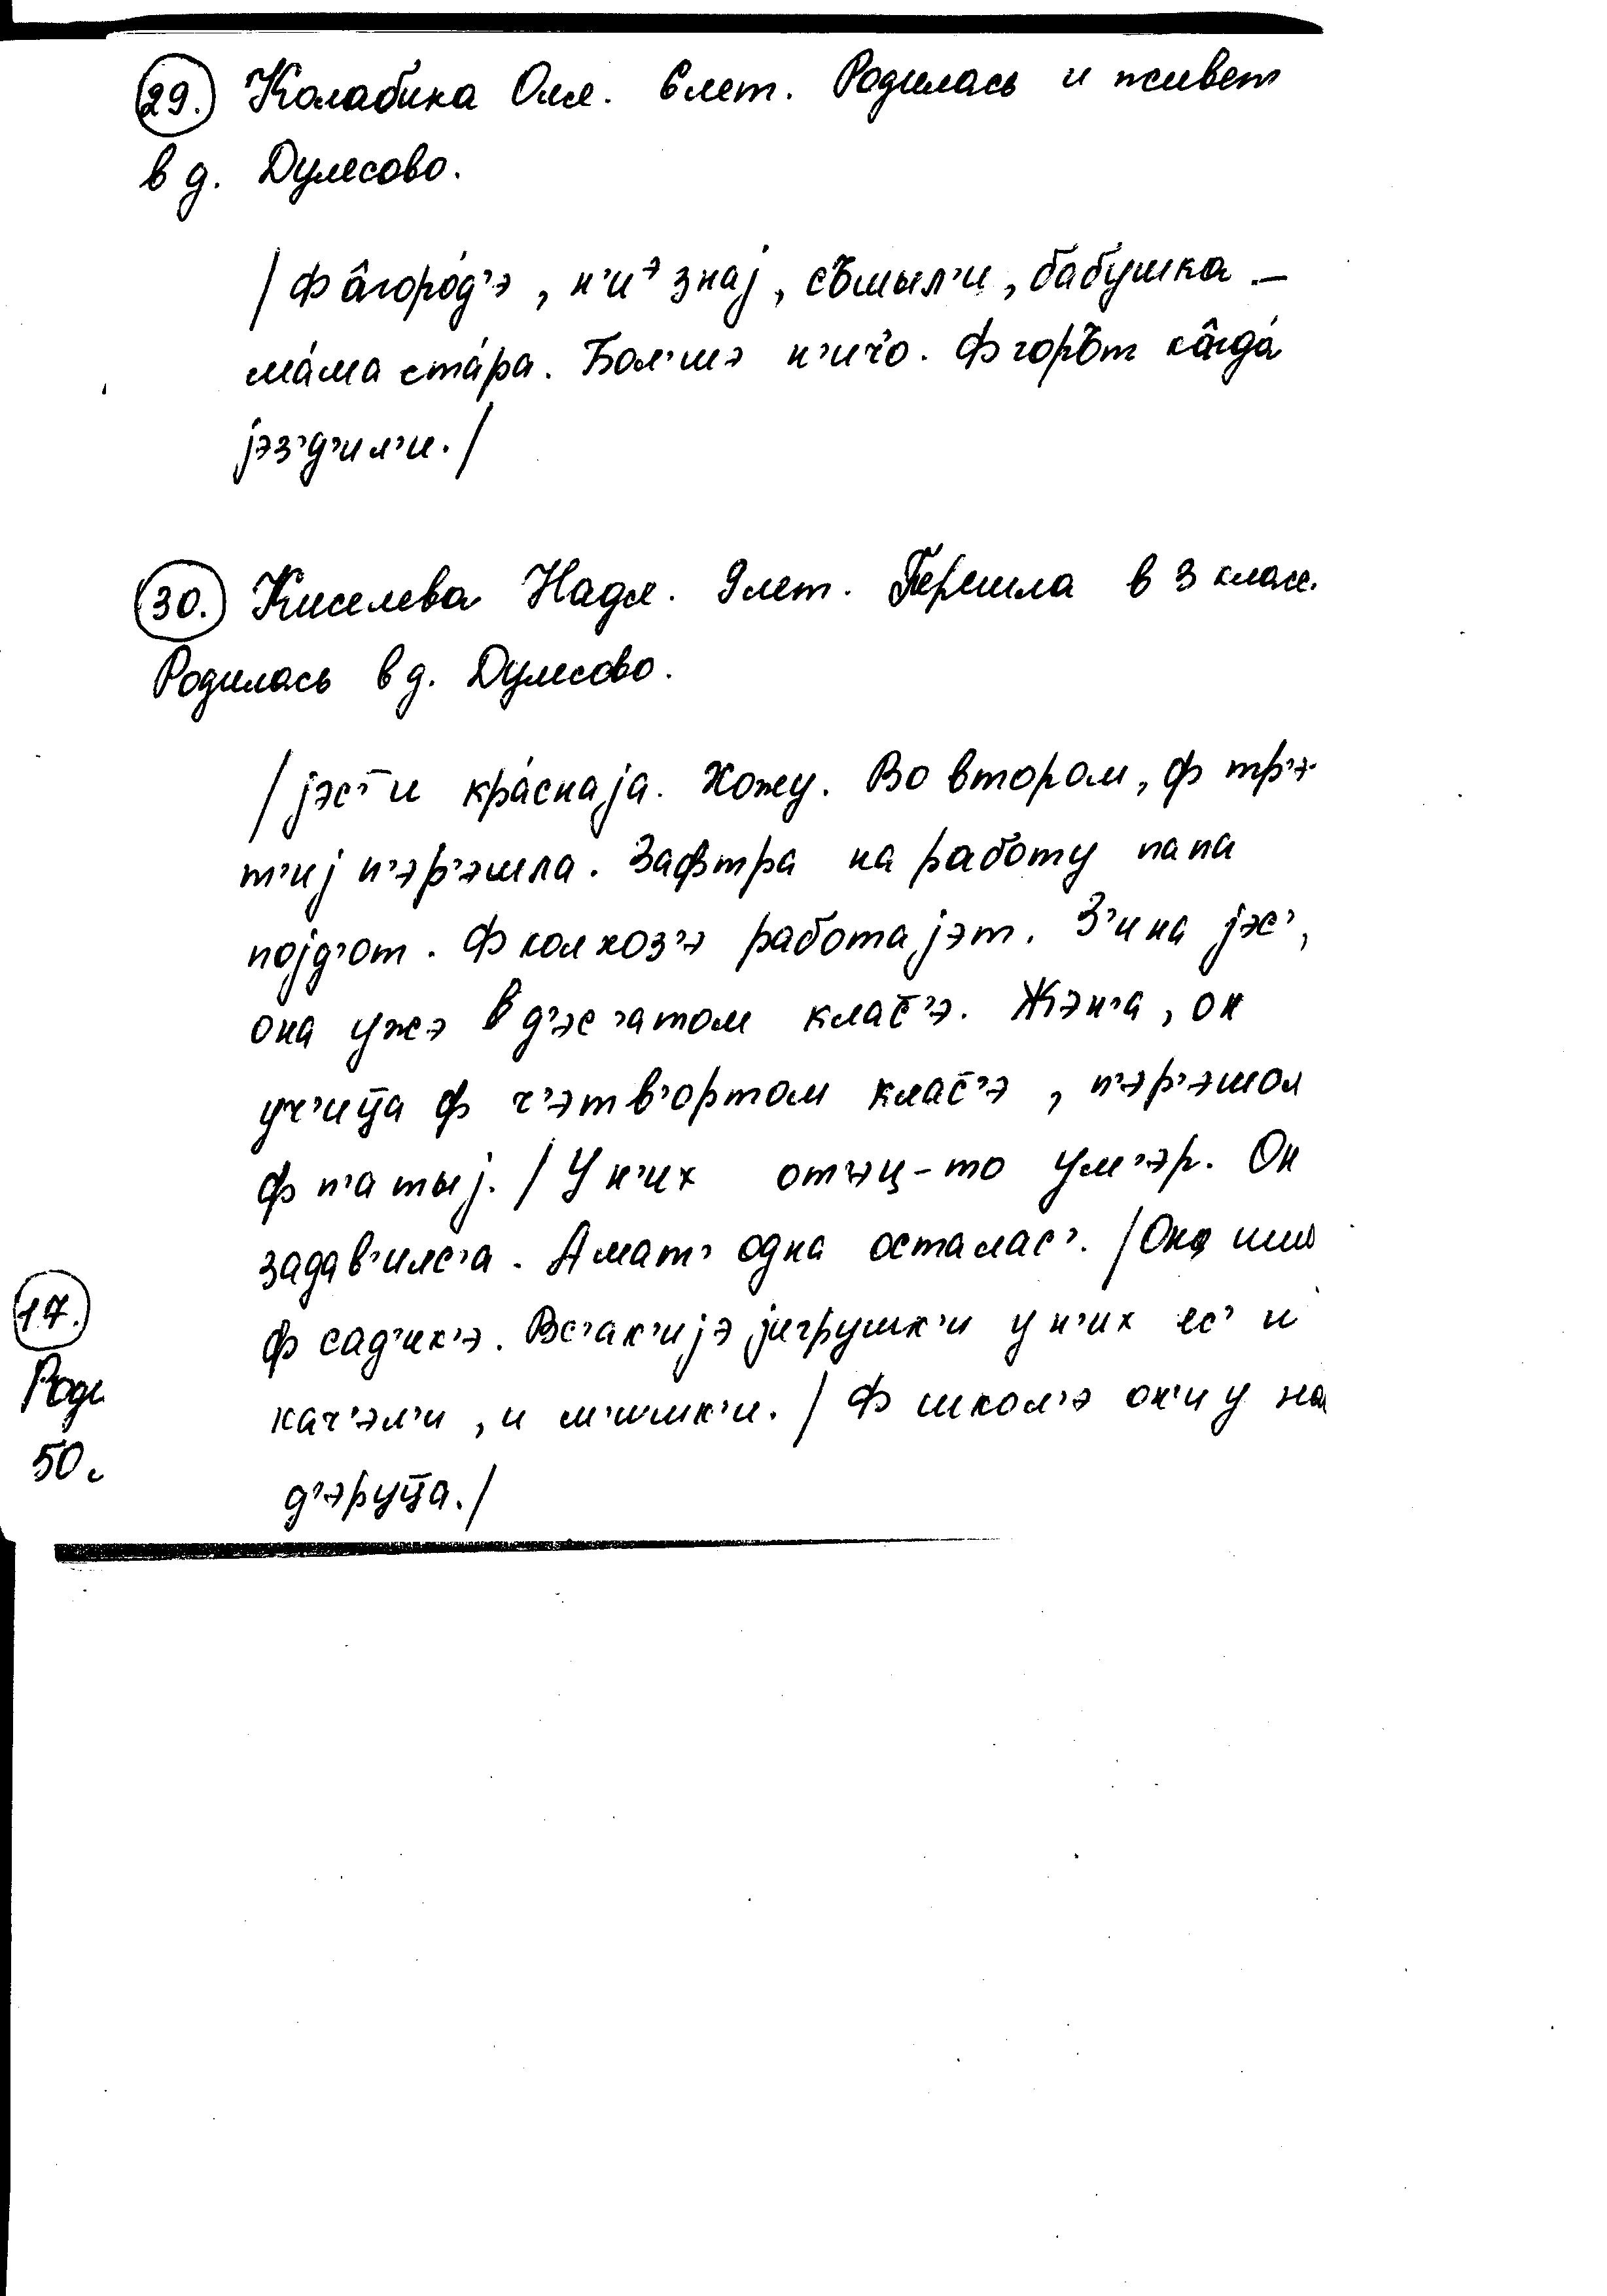 29. Колабина Оля. 6 лет. Родилась и живет
в д. Дулесово.
/ф а̂горо́д'э, н'иэ знај, съшыл'и, бабушка –
ма́ма ста́ра. Бол'шэ н'ич'о. Ф горът ка̂гда́
јэз'д'ил'и./
30. Киселева Надя. 9 лет. Перешла в 3 класс.
Родилась в д. Дулесово.
/јэс'т' и кра́снаја. Хожу. Во втором, ф тр'э-
т'иј п'эр'эшла. Зафтра на работу папа
појд'от. Ф колхоз'э работајэт. З'ина јэс',
она ужэ в д'эс'атом клас̄'э. Жэн'а, он
уч'иц̄а ф ч'этв'ортом клас̄'э, п'эр'эшол
ф п'атыј. / У н'их от'эц-то ум'эр. Он
задав'илс'а. А мат' одна осталас'. / Она
ф сад'ик'э. Вс'ак'ијэ јигрушк'и у н'их ес' и
кач'эл'и, и м'ишк'и. / Ф школ'э он'и у
д'эруц̄а./
17.
Роди
50